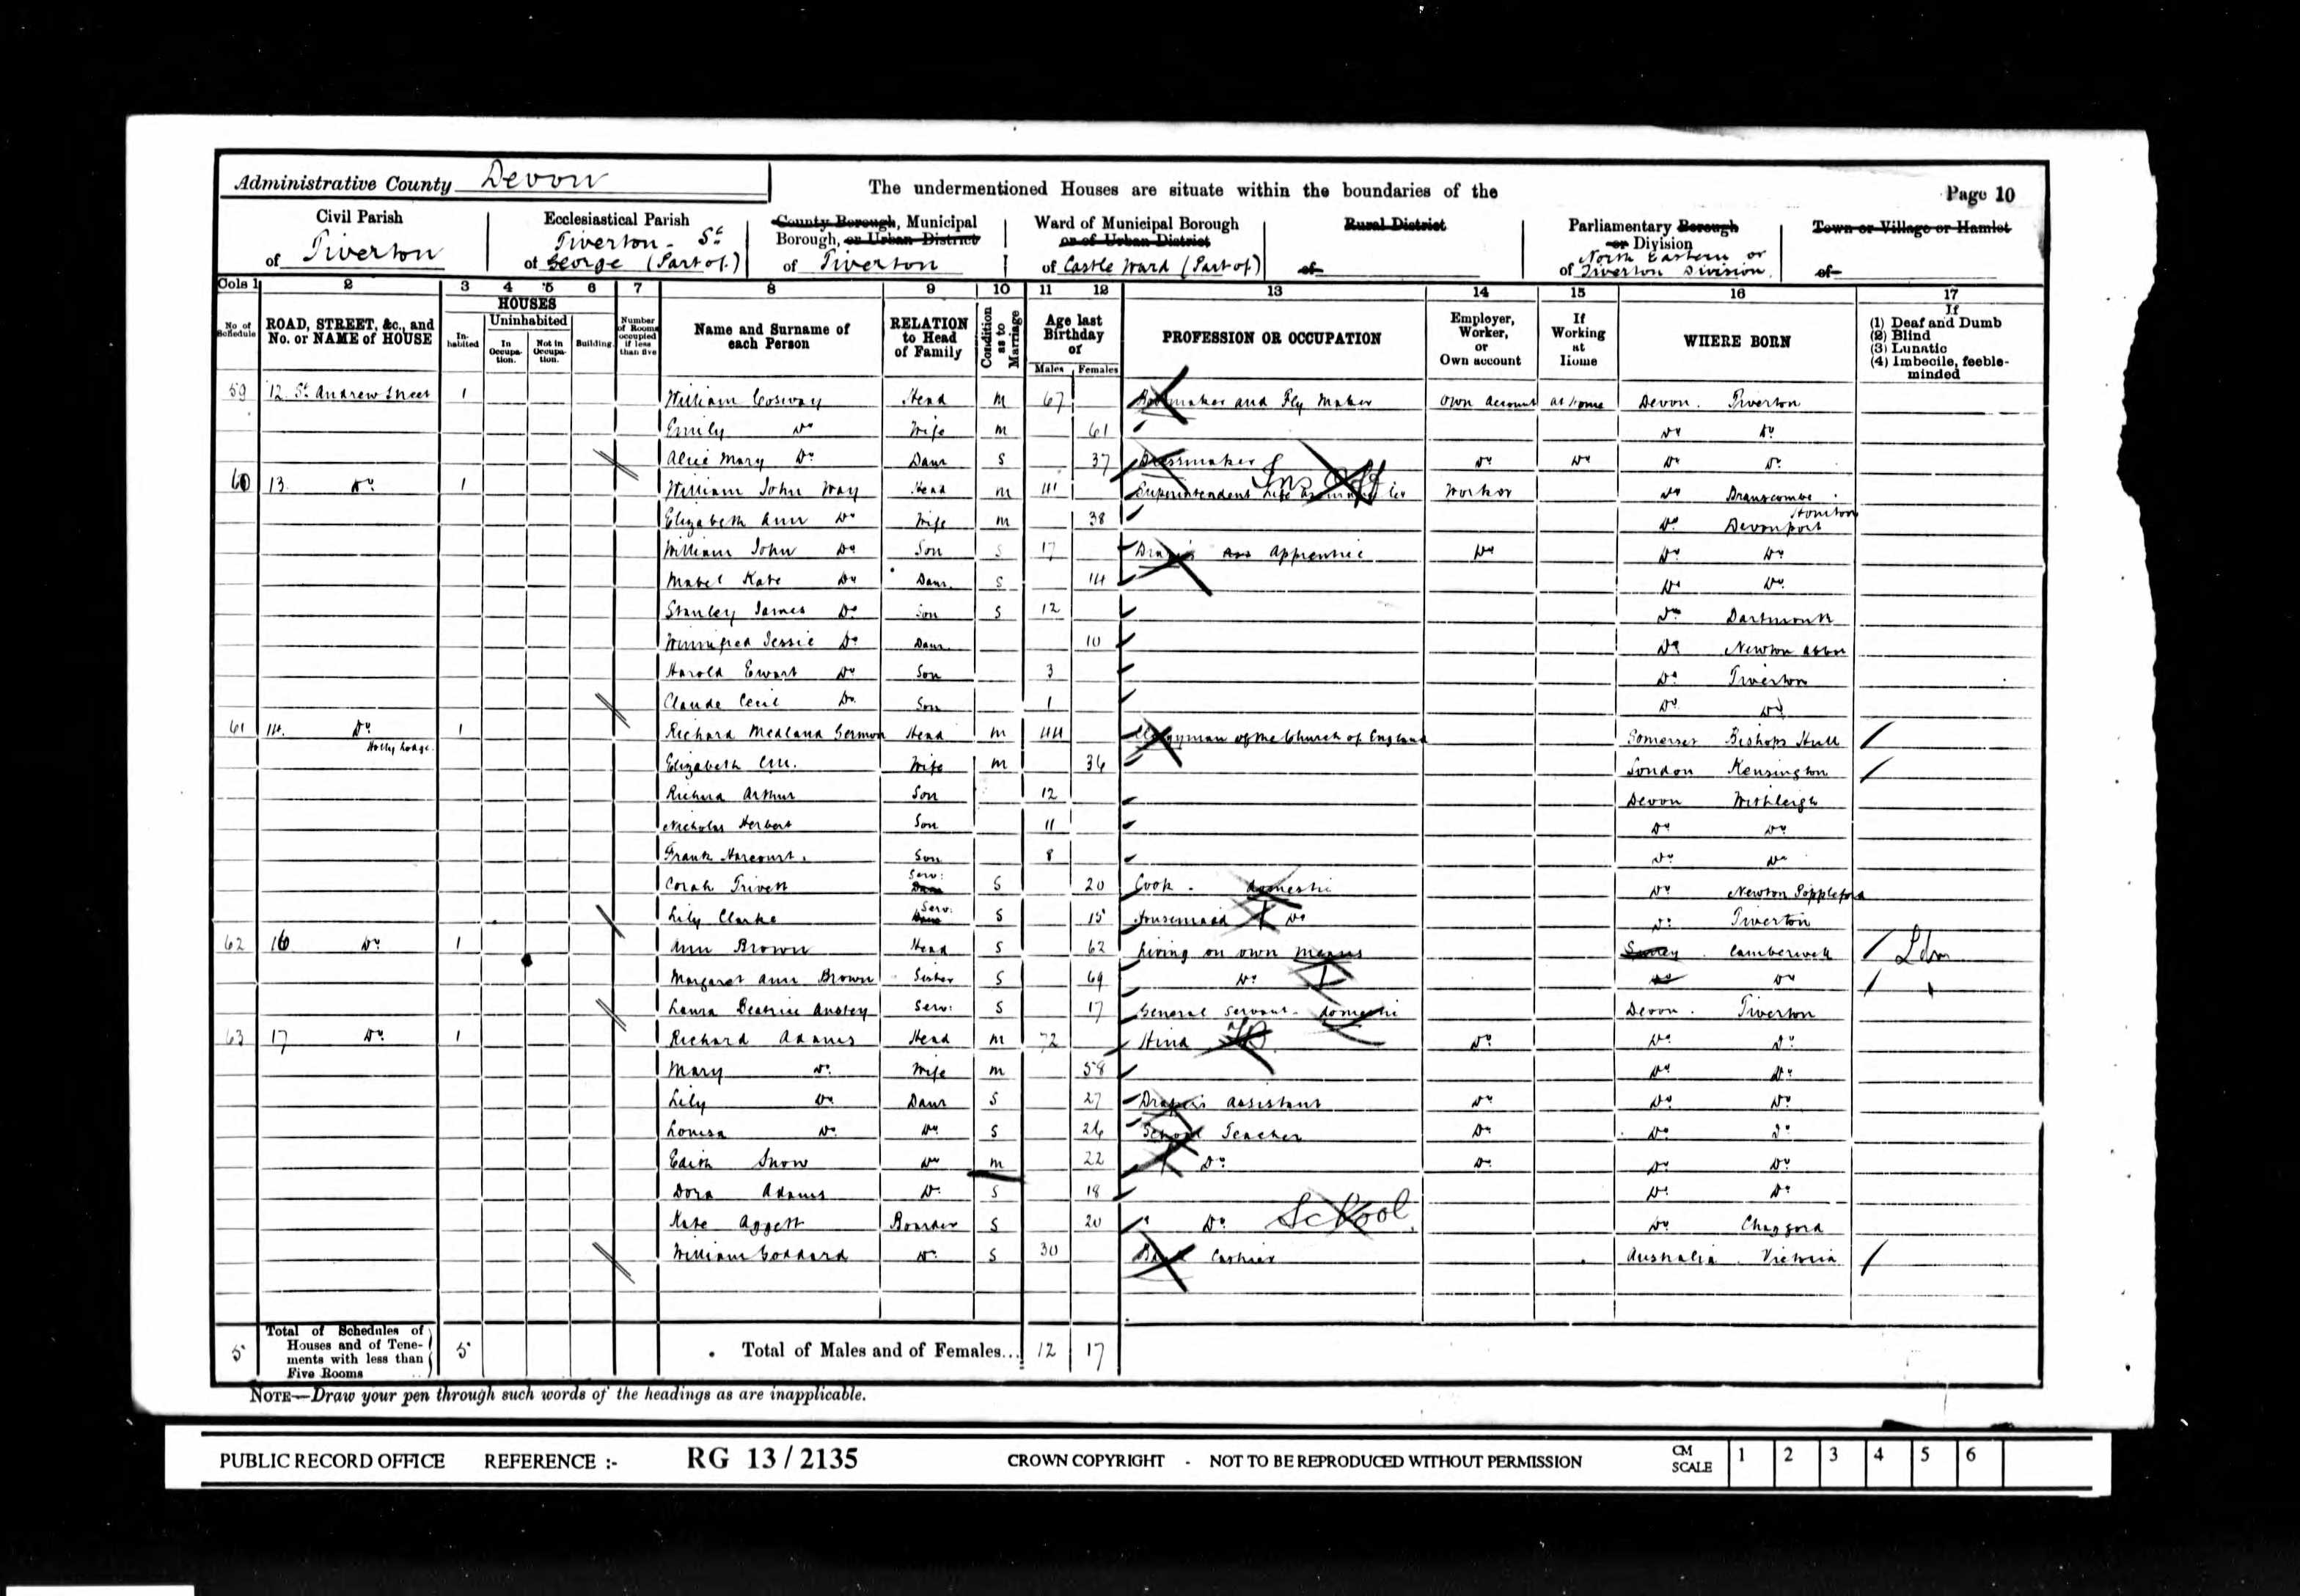 Administrative County Devon
The undermentioned Houses are situate within the boundaries of the
Page 10
Civil Parish
of Tiverton
Ecclesiastical Parish
Tiverton - St
of George (Part of.)
County Borough, Municipal
Borough, or Urban District
of Tiverton
Ward of Municipal Borough
or of Urban District
of Castle Ward (Part of)
Rural District
of
Parliamentary Borough
or Division
North Eastern or
of Tiverton Division.
Town or Village or Hamlet
of
Cols 1 2 3 4 5 6 7 8 9 10 11 12 13 14 15 16 17
No of Schedule
ROAD, STREET, &c., and No. or NAME of HOUSE
HOUSES
In-habited
Uninhabited
In Occupa-tion.
Not in Occupa-tion.
Building.
Number of Rooms occupied if less than five
Name and Surname of each Person
RELATION to Head of Family
Condition as to Marriage
Age last Birthday of
Males Females
PROFESSION OR OCCUPATION
Employer, Worker, or Own account
If Working at Home
WHERE BORN
If
(1) Deaf and Dumb
(2) Blind
(3) Lunatic
(4) Imbecile, feeble-minded
59 12 St Andrew Street 1 William Cosway Head M 67 maker and Fly Maker Own account at home Devon. Tiverton
Emily Do Wife M 61 Do Do
Alice Mary Do Daur S 37 Dressmaker Do Do Do Do
60 13 Do 1 William John Way Head M 41 Superintendent Life Worker Do Branscombe Honiton
Elizabeth Ann Do Wife M 38 Do Devonport
William John Do Son S 17 Draper's Apprentice Do Do Do
Mabel Kate Do Daur. S 14 Do Do
Stanley James Do Son S 12 Do Dartmouth
Winnifred Jessie Do Daur 10 Do Newton Abbot
Harold Ewart Do Son 3 Do Tiverton
Claude Cecil Do Son 1 Do Do
61 14. Do Holly Lodge. 1 Richard Medland Germon Head M 44 Clergyman of the Church of England Somerset Bishops Hull
Elizabeth Wife M 36 London Kensington
Richard Arthur Son 12 Devon Withleigh
Nicholas Herbert Son 11 Do Do
Frank Harcourt. Son 8 Do Do
Corah Trivett Serv: Daur S 20 Cook - domestic Do Newton Poppleford
Lily Clarke Serv: Daur S 15 Housemaid Do Do Tiverton
62 16 Do 1 Ann Brown Head S 62 Living on own means Surrey Camberwell Ldn
Margaret Ann Brown Sister S 69 Do Do Do
Laura Beatrice Anstey Serv: S 17 General Servant - domestic Devon. Tiverton
63 17 Do 1 Richard Adams Head M 72 Hind Do Do Do
Mary Do Wife M 58 Do Do
Lily Do Daur S 27 Draper's Assistant Do Do Do
Louisa Do Do S 24 School Teacher Do Do Do
Edith Snow Do M 22 Do Do Do Do
Dora Adams Do S 18 Do Do
Kate Aggett Boarder S 20 Do School Do Chagford
William Goddard Do S 30 Bank Cashier Australia Victoria
5 Total of Schedules of Houses and of Tene-ments with less than Five Rooms 5 Total of Males and of Females... 12 17
NOTE—Draw your pen through such words of the headings as are inapplicable.
PUBLIC RECORD OFFICE REFERENCE :- RG 13 / 2135 CROWN COPYRIGHT - NOT TO BE REPRODUCED WITHOUT PERMISSION CM SCALE 1 2 3 4 5 6